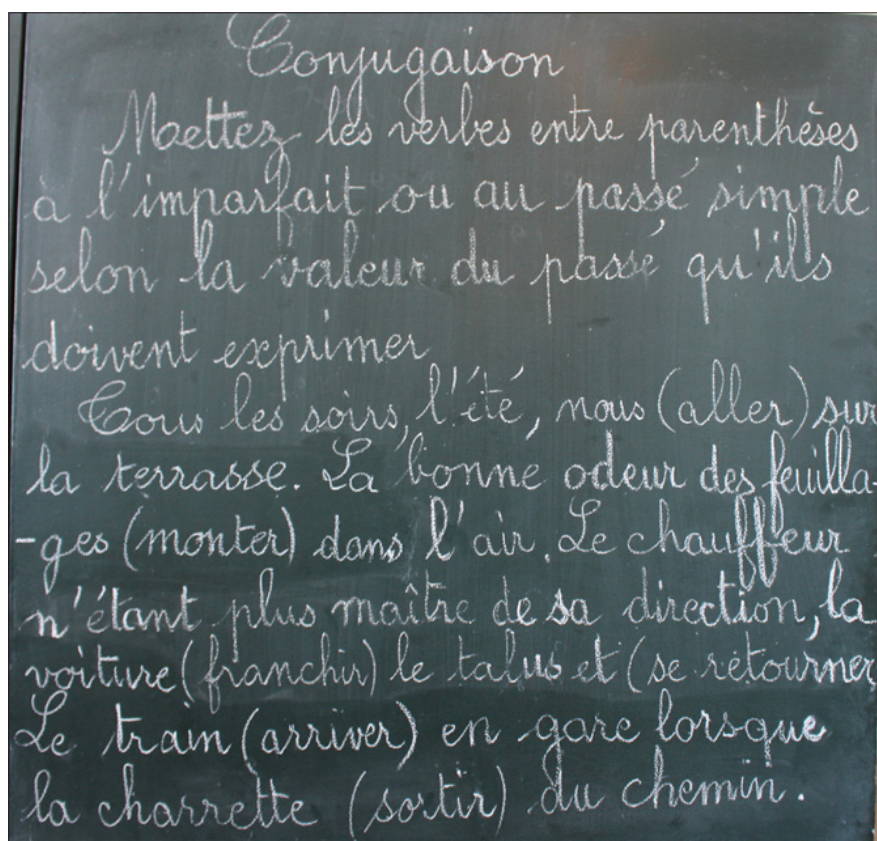 Conjugaison
Mettez les verbes entre parenthèses
à l'imparfait ou au passé simple
selon la valeur du passé qu'ils
doivent exprimer
Tous les soirs, l'été, nous (aller) sur
la terrasse. La bonne odeur des feuilla-
-ges (monter) dans l'air. Le chauffeur
n'étant plus maître de sa direction, la
voiture (franchir) le talus et (se retourner
Le train (arriver) en gare lorsque
la charrette (sortir) du chemin.